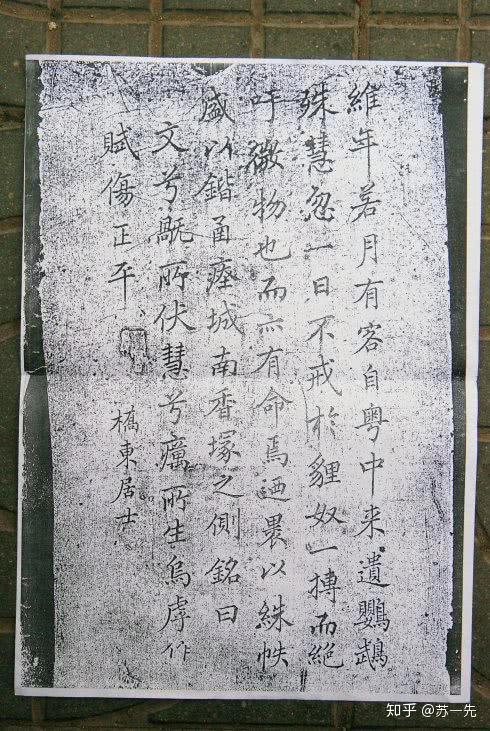 維年若月有客自粤中来遺鸚鵡
殊慧忽一日不戒於貍奴一搏而絕
吁微物也而亦有命焉迺裹以絑帙
盛以鍇臿瘞城南香塚之側銘曰
文兮旤所伏慧兮癘所生烏虖作
賦傷正平
橋東居士
知乎 @苏一先